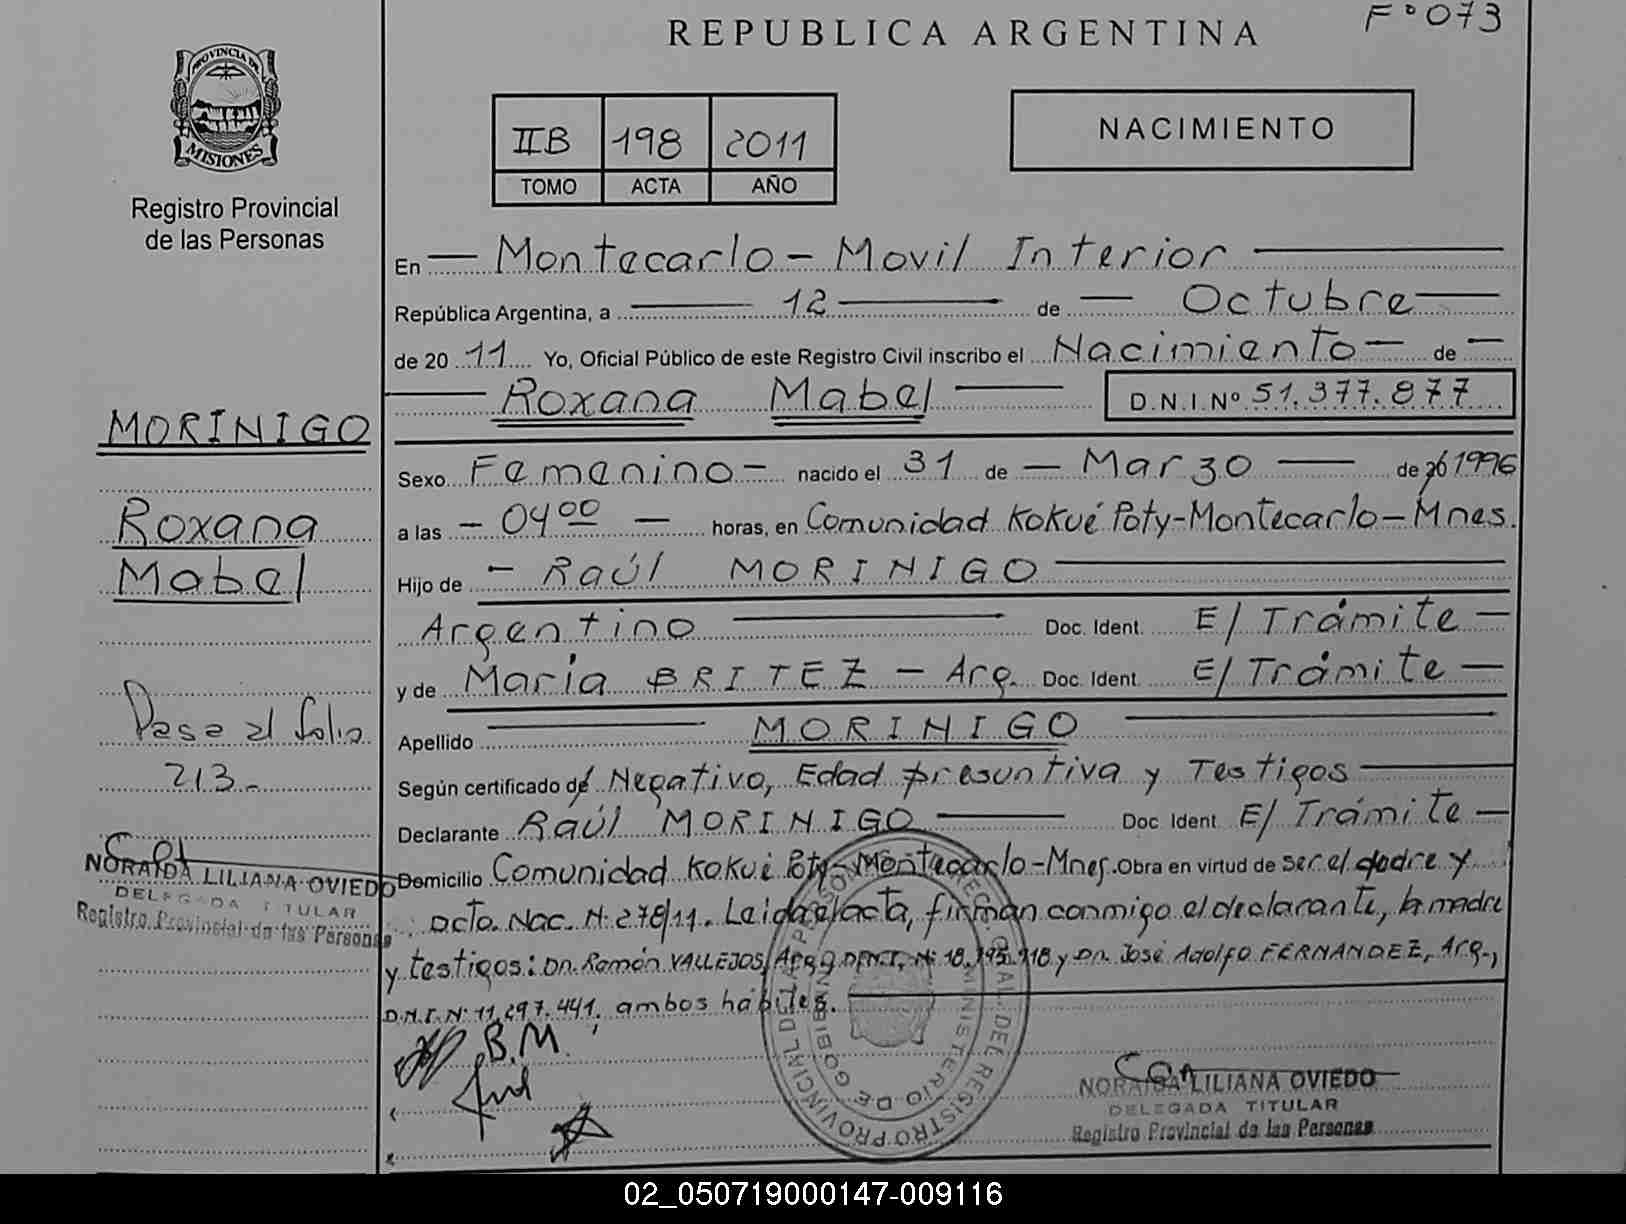 REPUBLICA ARGENTINA
Fº 073
PROVINCIA DE
MISIONES
Registro Provincial
de las Personas
IIB 198 2011
TOMO ACTA AÑO
NACIMIENTO
En — Montecarlo - Movil Interior —
República Argentina, a — 12 — de — Octubre —
de 20 11 Yo, Oficial Público de este Registro Civil inscribo el Nacimiento — de —
— Roxana Mabel — D.N.I.Nº 51.377.877
MORINIGO
Roxana
Mabel
Sexo Femenino - nacido el 31 de — Marzo — de 1996
a las - 04 00 — horas, en Comunidad Kokué Poty-Montecarlo-Mnes.
Hijo de - Raúl MORINIGO —
Argentino — Doc. Ident. E/Trámite —
y de María BRITEZ - Arg. Doc. Ident. E/Trámite —
Apellido — MORINIGO —
Pase al folio
213.-
Según certificado de Negativo, Edad presuntiva y Testigos —
Declarante Raúl MORINIGO — Doc Ident. E/Trámite —
Domicilio Comunidad Kokué Poty-Montecarlo-Mnes. Obra en virtud de ser el padre y
Dcto. Nac. Nº 278/11. Leida el acta, firman conmigo el declarante, la madre
y testigos: Dn. Ramón VALLEJOS, Arg., D.N.I. Nº y Dn. José Adolfo FERNANDEZ, Arg.,
D.N.I. Nº 11.297.441, ambos hábiles.
NORAIDA LILIANA OVIEDO
DELEGADA TITULAR
Registro Provincial de las Personas
B.M.
NORAIDA LILIANA OVIEDO
DELEGADA TITULAR
Registro Provincial de las Personas
02_050719000147-009116